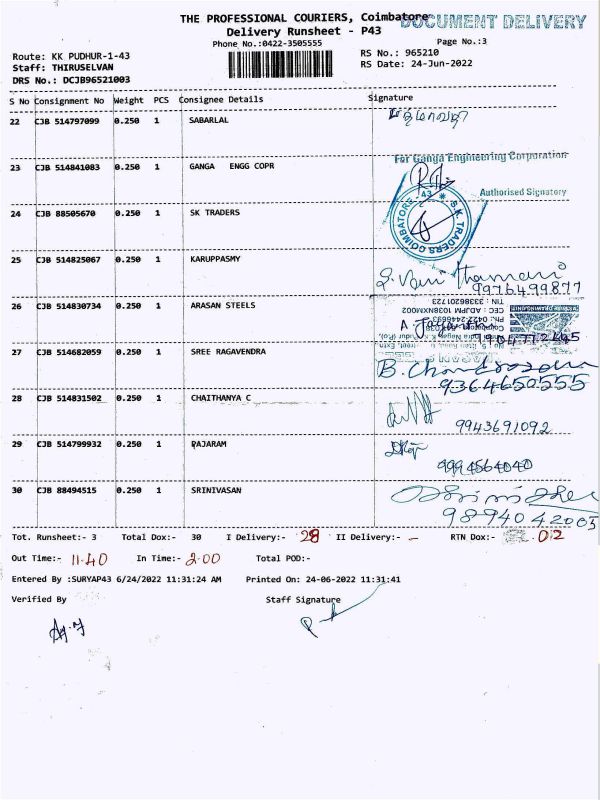 THE PROFESSIONAL COURIERS, Coimbatore
DOCUMENT DELIVERY
Delivery Runsheet - P43
Phone No.:0422-3505555
Page No.:3
Route: KK PUDHUR-1-43
RS No.: 965210
Staff: THIRUSELVAN
RS Date: 24-Jun-2022
DRS No.: DCJB96521003
S No Consignment No Weight PCS Consignee Details Signature
22 CJB 514797099 0.250 1 SABARLAL
For Ganga Engineering Corporation
23 CJB 514841083 0.250 1 GANGA ENGG COPR
Authorised Signatory
24 CJB 88505670 0.250 1 SK TRADERS
S.K. TRADERS COIMBATORE 43
25 CJB 514825067 0.250 1 KARUPPASMY
9976499877
26 CJB 514830734 0.250 1 ARASAN STEELS
27 CJB 514682059 0.250 1 SREE RAGAVENDRA
9364650555
28 CJB 514831502 0.250 1 CHAITHANYA C
9943691092
29 CJB 514799932 0.250 1 RAJARAM
9994564040
30 CJB 88494515 0.250 1 SRINIVASAN
9894042005
Tot. Runsheet:- 3 Total Dox:- 30 I Delivery:- 28 II Delivery:- - RTN Dox:- 02
Out Time:- 11.40 In Time:- 2.00 Total POD:-
Entered By :SURYAP43 6/24/2022 11:31:24 AM Printed On: 24-06-2022 11:31:41
Verified By Staff Signature